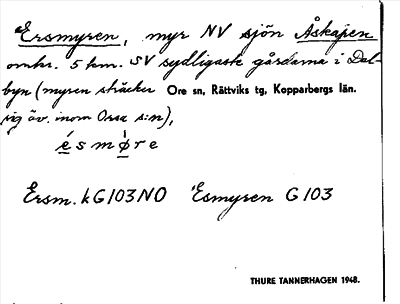 Ersmyren, myr NV sjön Åskäpen
omkr. 5 km. SV sydligaste gårdarna i Dal-
byn (myren sträcker Ore sn, Rättviks tg, Kopparbergs län.
sig äv. inom Orsa s:n),
é s m ø r e
Ersm. kG103NO Esmyren G 103
THURE TANNERHAGEN 1948.